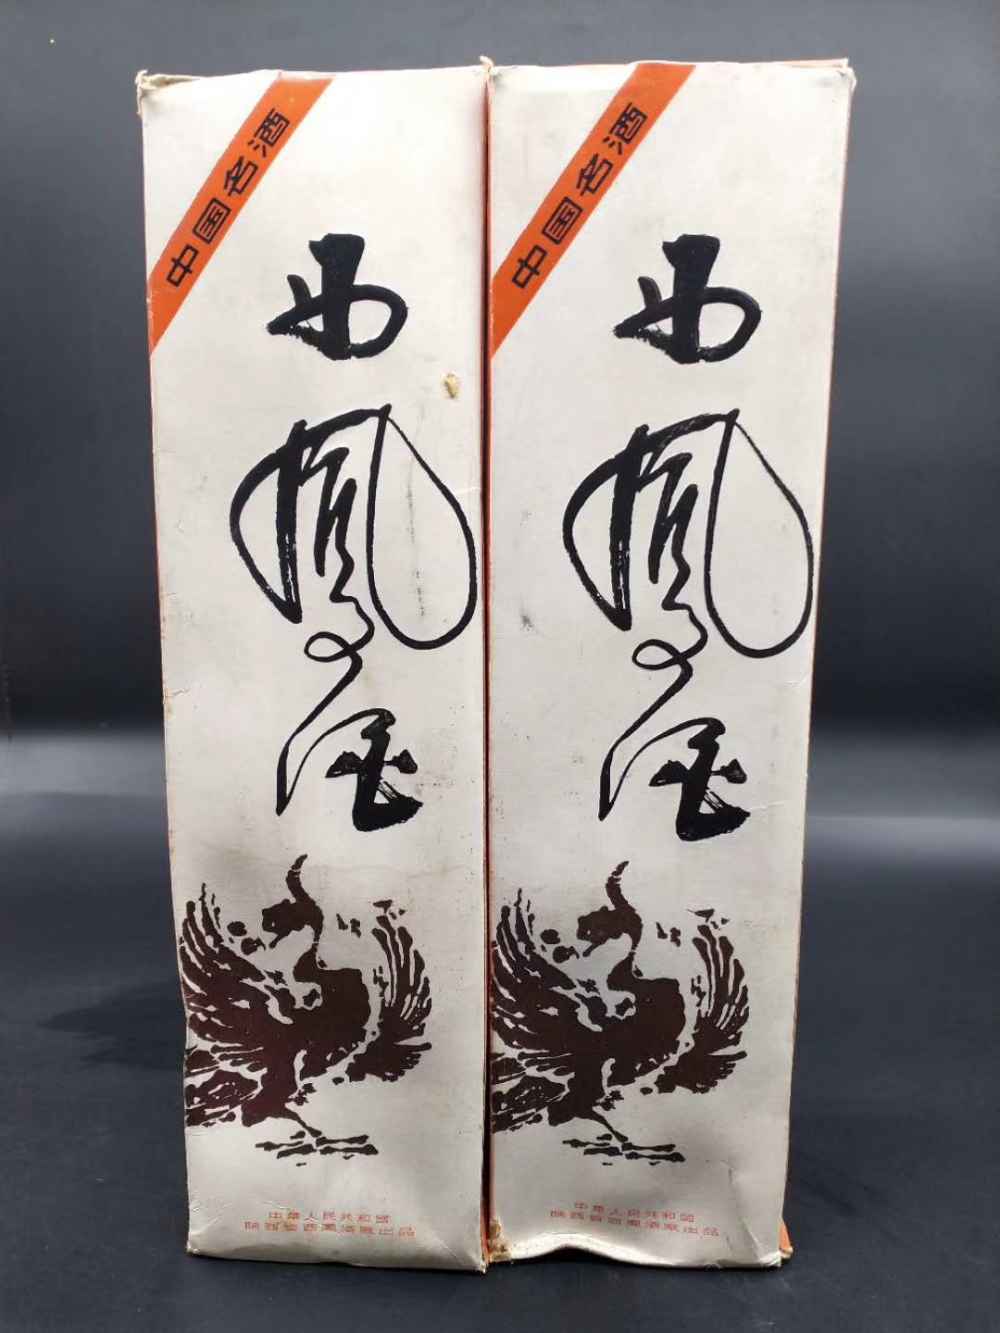 中国名酒
西鳳酒
中華人民共和國
陕西省西鳳酒廠出品
中国名酒
西鳳酒
中華人民共和國
陕西省西鳳酒廠出品